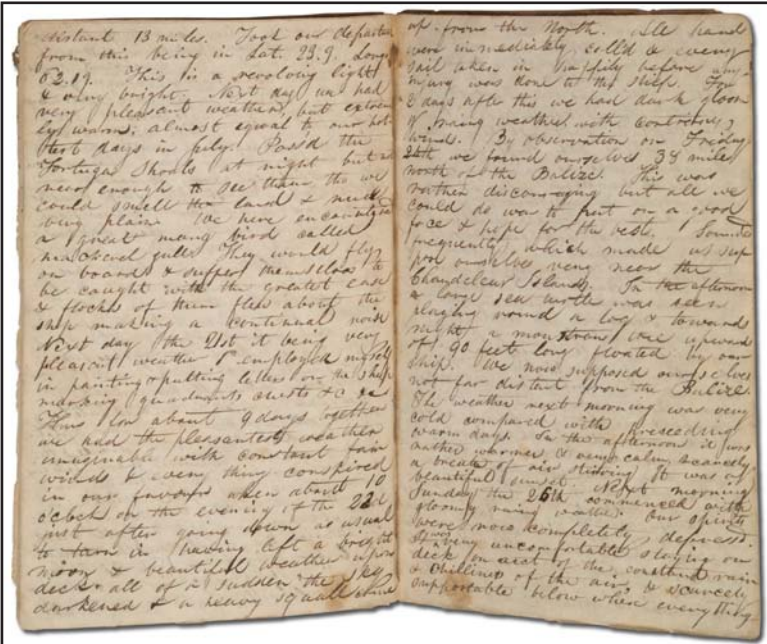 distant 13 miles. Took our departure
from this being in Lat. 23.9. Long.
62.19. This is a revolving light
& very bright. Next day we had
very pleasant weather but extrem
ely warm, almost equal to our hot
test days in July. Pass'd the
Tortuga Shoals at night but not
near enough to see them tho we
could smell the land & mud
very plain. We here encountered
a great many bird called
mackerel gulls They would fly
on board & suffer themselves to
be caught with the greatest ease
& flocks of them flew about the
ship making a continual noise
Next day the 21st it being very
pleasant weather I employed myself
in painting & putting letters on the ship
marking quadrants chests &c &c
Thus for about 9 days together
we had the pleasantest weather
imaginable with constant fair
winds & every thing conspired
in our favour when about 10
o'clock on the evening of the 22d
just after going down as usual
to turn in having left a bright
moon & beautiful weather upon
deck all of a sudden the sky
darkened & a heavy squall came
up from the North. All hands
were immediately call'd & every
sail taken in happily before any
injury was done to the ship. For
2 days after this we had dark gloom
y rainy weather with contrary
winds. By observation on Friday
24th we found ourselves 38 miles
north of the Balize. This was
rather discouraging but all we
could do was to put on a good
face & hope for the best. Sounded
frequently which made us sup
pose ourselves very near the
Chandeleur Islands. In the afternoon
a large sea turtle was seen
playing round a log & towards
night a monstrous tree upwards
of 90 feet long floated by our
ship. We now supposed ourselves
not far distant from the Balize.
The weather next morning was very
cold compared with preseeding
warm days. In the afternoon it was
rather warmer & very calm, scarcely
a breath of air stirring It was a
beautiful sunset Next morning
Sunday the 26th commenced with
gloomy rainy weather. Our spirits
were more completely depress'd.
It was very uncomfortable staying on
deck on acct of the constant rain
& chilliness of the air, & scarcely
supportable below when everything